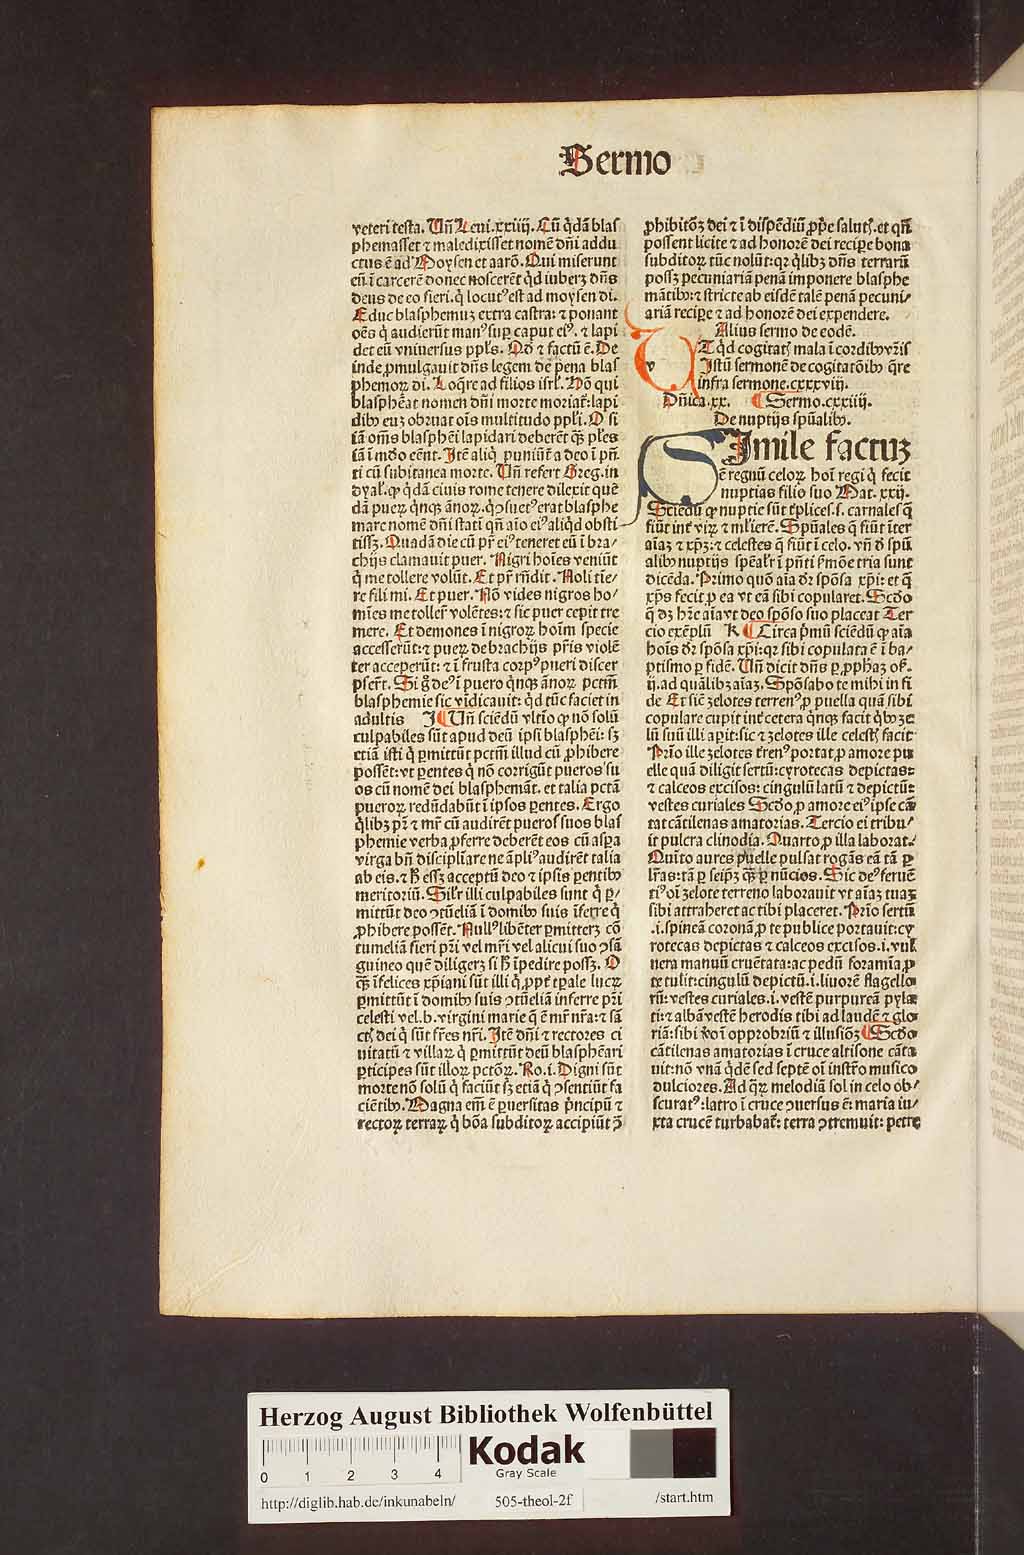 Sermo
veteri testa. Vñ Leui.xxiiij. Cũ q̃dã blas
phemasset ⁊ maledixisset nomē dñi addu
ctus ē ad Moysen et aarō. Qui miserunt
eũ ĩ carcerē donec noscerēt qd iuberꝫ dñs
deus de eo fieri. q̃ locutꝰ est ad moysen di.
Educ blasphemuꝫ extra castra: ⁊ ponant
oēs q̃ audierũt manꝰ suꝑ caput eiꝰ. ⁊ lapi
det eũ vniuersus ppl's. Qđ ⁊ factũ ē. De
inde ꝓmulgauit dñs legem de pena blas
phemoꝝ di. Loq̃re ad filios isrl'. Hō qui
blasphēat nomen dñi morte moriat̃: lapi
dibꝰ euꝫ obruat ois multitudo ppl'i. O si
iã om̃s blasphēi lapidari deberēt qꝫ pl'es
iã ĩ mđo eēnt. Itē aliq̃ puniũt̃ a deo ĩ pñ
ti cũ subitanea morte. Vñ refert Greg. in
dyal'. ꝙ q̃dã ciuis rome tenere dilexit quē
dã pueꝝ q̃nqꝫ ãnoꝝ. q̃ ↄsuetꝰ erat blasphe
mare nomē dñi stati qñ aĩo eiꝰ aliqđ obsti
tissꝫ. Quadã die cũ pr̃ eiꝰ teneret eũ ĩ bra/
chijs clamauit puer. Nigri hoĩes veniũt
q̃ me tollere volũt. Et pr̃ rñdit. Noli tie/
re fili mi. Et puer. Nō vides nigros ho/
mĩes me toller̃ volētes: ⁊ sic puer cepit tre
mere. Et demones ĩ nigroꝝ hoĩm specie
accesserũt: ⁊ pueꝝ de brachijs pr̃is violē
ter acceperũt: ⁊ ĩ frusta corpꝰ pueri discer
pser̃t. Si g̊ deꝰ ĩ puero q̃nqꝫ ãnoꝝ pctm̃
blasphemie sic vidicauit: qđ tũc faciet in
adultis I ¶ Vñ sciēdũ vltĩo ꝙ nō solũ
culpabiles sũt apud deũ ipsi blasphēi: sꝫ
etiã isti q̃ ꝑmittũt pctm̃ illud cũ ꝓhibere
possēt: vt ꝑentes q̃ nō corrigũt pueros su
os cũ nomē dei blasphemãt. et talia pctã
pueroꝝ redũdabũt ĩ ipsos ꝑentes. Ergo
q̃libꝫ pr̃ ⁊ mr̃ cũ audirēt pueros suos blas
phemie verba ꝓferre deberēt eos cũ aspa
virga bñ disciplĩare ne ãpliꝰ audirēt talia
ab eis. ⁊ h̃ essꝫ acceptũ deo ⁊ ipsis ꝑentibꝰ
meritoriũ. Sil'r illi culpabiles sunt q̃ ꝑ/
mittũt deo ↄtũeliã ĩ domibꝰ suis ĩferre q̃
ꝓhibere possēt. Nullꝰ libēter ꝑmitterꝫ cō
tumeliã fieri pr̃i vel mr̃i vel alicui suo ↄsã
guineo quē diligerꝫ si h̃ ĩpedire possꝫ. O
qꝫ ĩfelices xp̃iani sũt illi q̃ ꝓpt̃ tp̃ale lucꝝ
ꝑmittũt ĩ domibꝰ suis ↄtũeliã inferre pr̃i
celesti vel .b. virgini marie q̃ ē mr̃ nr̃a: ⁊ sã
ctꝭ dei q̃ sũt fr̃es nr̃i. Itē dñi ⁊ rectores ci
uitatũ ⁊ villaꝝ q̃ ꝑmittũt deũ blasphēari
ꝑticipes sũt illoꝝ pctōꝝ. Ro.i. Digni sũt
morte nō solũ q̃ faciũt sꝫ etiã q̃ ↄsentiũt fa
ciētibꝰ. Magna em̃ ē ꝑuersitas p̃ncipũ ⁊
rectoꝝ terraꝝ q̃ bōa subditoꝝ accipiũt ↄ̃
phibitōꝫ dei ⁊ ĩ dispēdiũ ꝓp̃e salutꝭ. et qñ
possent licite ⁊ ad honorē dei recipe bona
subditoꝝ tũc nolũt: qꝛ q̃libꝫ dñs terrarũ
possꝫ pecuniariã penã imponere blasphe
mãtibꝰ: ⁊ stricte ab eisdē talē penã pecuni/
ariã recipe ⁊ ad honorē dei expendere.
Alius sermo de eodē.
VT qđ cogitatꝭ mala ĩ cordibꝰ vr̃is
Istũ sermonē de cogitatōibꝰ q̃re
infra sermone.cxxxviij.
Dñica.xx. ¶ Sermo.cxxiiij.
De nuptijs spũalibꝰ.
SImile factuꝫ
ē regnũ celoꝝ hoĩ regi q̃ fecit
nuptias filio suo Mat.xxij.
Sciēdũ ꝙ nuptie sũt tp̃lices. s. carnales q̃
fiũt int̃ viꝝ ⁊ ml'ierē. Spũales q̃ fiũt ĩter
aĩaꝫ ⁊ xp̃ꝫ: ⁊ celestes q̃ fiũt ĩ celo. vñ đ spũ
alibꝰ nuptijs spēal'r ĩ pñti p̃mōe tria sunt
dicēda. Primo quō aĩa dr̃ spōsa xp̃i: et q̃
xp̃s fecit ꝓ ea vt eã sibi copularet. Scđo
q̃ dꝫ hr̃e aĩa vt deo spōso suo placeat Ter
cio exēplũ K ¶ Circa p̃mũ sciēdũ ꝙ aĩa
hoĩs dr̃ spōsa xp̃i: qꝛ sibi copulata ē ĩ ba/
ptismo ꝑ fidē. Vñ dicit dñs ꝑ ꝓphaꝫ os̃.
ij. ad quãlibꝫ aĩaꝫ. Spōsabo te mihi in fi
de Et siē zelotes terrenꝰ ꝓ puella quã sibi
copulare cupit int̃ cetera q̃nqꝫ facit q̃bꝰ ze
lũ suũ illi apit: sic ⁊ zelotes ille celestꝭ facit
Prĩo ille zelotes t̃renꝰ portat ꝓ amore pu
elle quã diligit sertũ: cyrotecas depictas:
⁊ calceos excisos: cingulũ latũ ⁊ depictũ:
vestes curiales Scđo ꝓ amore eiꝰ ipse cã
tat cãtilenas amatorias. Tercio ei tribu/
it pulcra clinodia. Quarto ꝓ illa laborat.
Quĩto aures puelle pulsat rogãs eã tã ꝑ
lr̃as: tã ꝑ seipꝫ qꝫ ꝑ nũcios. Sic deꝰ feruē
tiꝰ oĩ zelote terreno laborauit vt aĩaꝫ tuaꝫ
sibi attraheret ac tibi placeret. Prĩo sertũ
.i. spineã coronã ꝓ te publice portauit: cy
rotecas depictas ⁊ calceos excisos .i. vul
nera manuũ cruētata: ac pedũ foramĩa ꝓ
te tulit: cingulũ depictũ .i. liuorē flagello
rũ: vestes curiales .i. vestē purpureã pyla
ti: ⁊ albã vestē herodis tibi ad laudē ⁊ glo
riã: sibi ꝟo ĩ opprobriũ ⁊ illusiōꝫ ¶ Scđo
cãtilenas amatorias ĩ cruce altisone cãta
uit: nō vnã q̃dē sed septē oĩ instr̃o musico
dulciores. Ad q̃ꝝ melodiã sol in celo ob/
scuratꝰ: latro ĩ cruce ↄuersus ē: maria iu/
xta crucē turbabat̃: terra ↄtremuit: petre
Herzog August Bibliothek Wolfenbüttel
0 1 2 3 4
Kodak
Gray Scale
http://diglib.hab.de/inkunabeln/ 505-theol-2f /start.htm